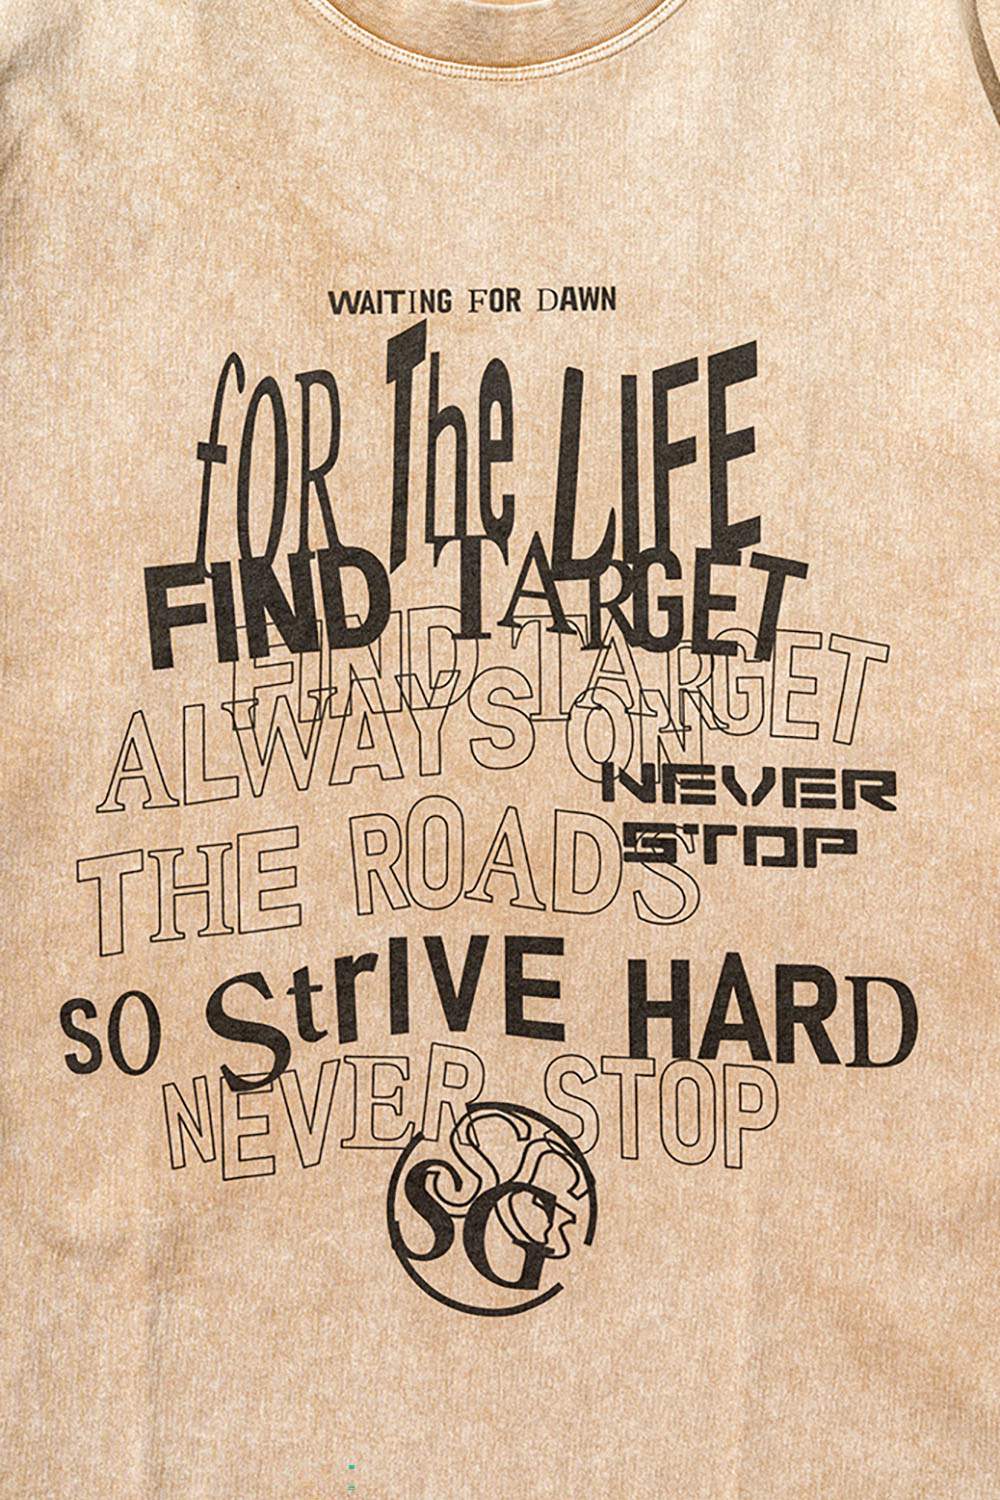 WAITING FOR DAWN
fOR The LIFE
FIND TARGET
FIND TARGET
ALWAYS ON
NEVER
STOP
THE ROADS
SO StrIVE HARD
NEVER STOP
SG
SG